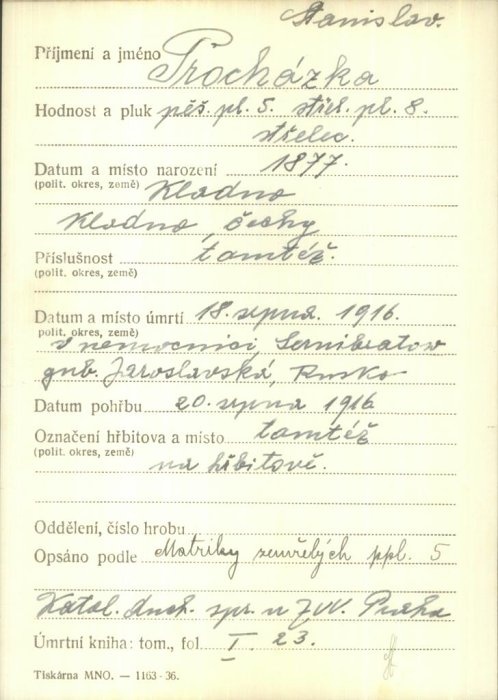 Stanislav.
Příjmení a jméno Procházka
Hodnost a pluk pěš. pl. 5. střel. pl. 8.
střelec.
Datum a místo narození 1877.
(polit. okres, země) Kladno
Kladno, Čechy
Příslušnost tamtéž.
(polit. okres, země)
Datum a místo úmrtí 18. srpna 1916.
(polit. okres, země) v nemocnici, Sernibratow
gub. Jaroslavská, Rusko
Datum pohřbu 20. srpna 1916
Označení hřbitova a místo tamtéž
(polit. okres, země)
na hřbitově.
Oddělení, číslo hrobu
Opsáno podle Matriky zemřelých ppl. 5
Katol. duch. spr. u ZVV. Praha
Úmrtní kniha: tom., fol. I. 23.
Tiskárna MNO. — 1163-36.